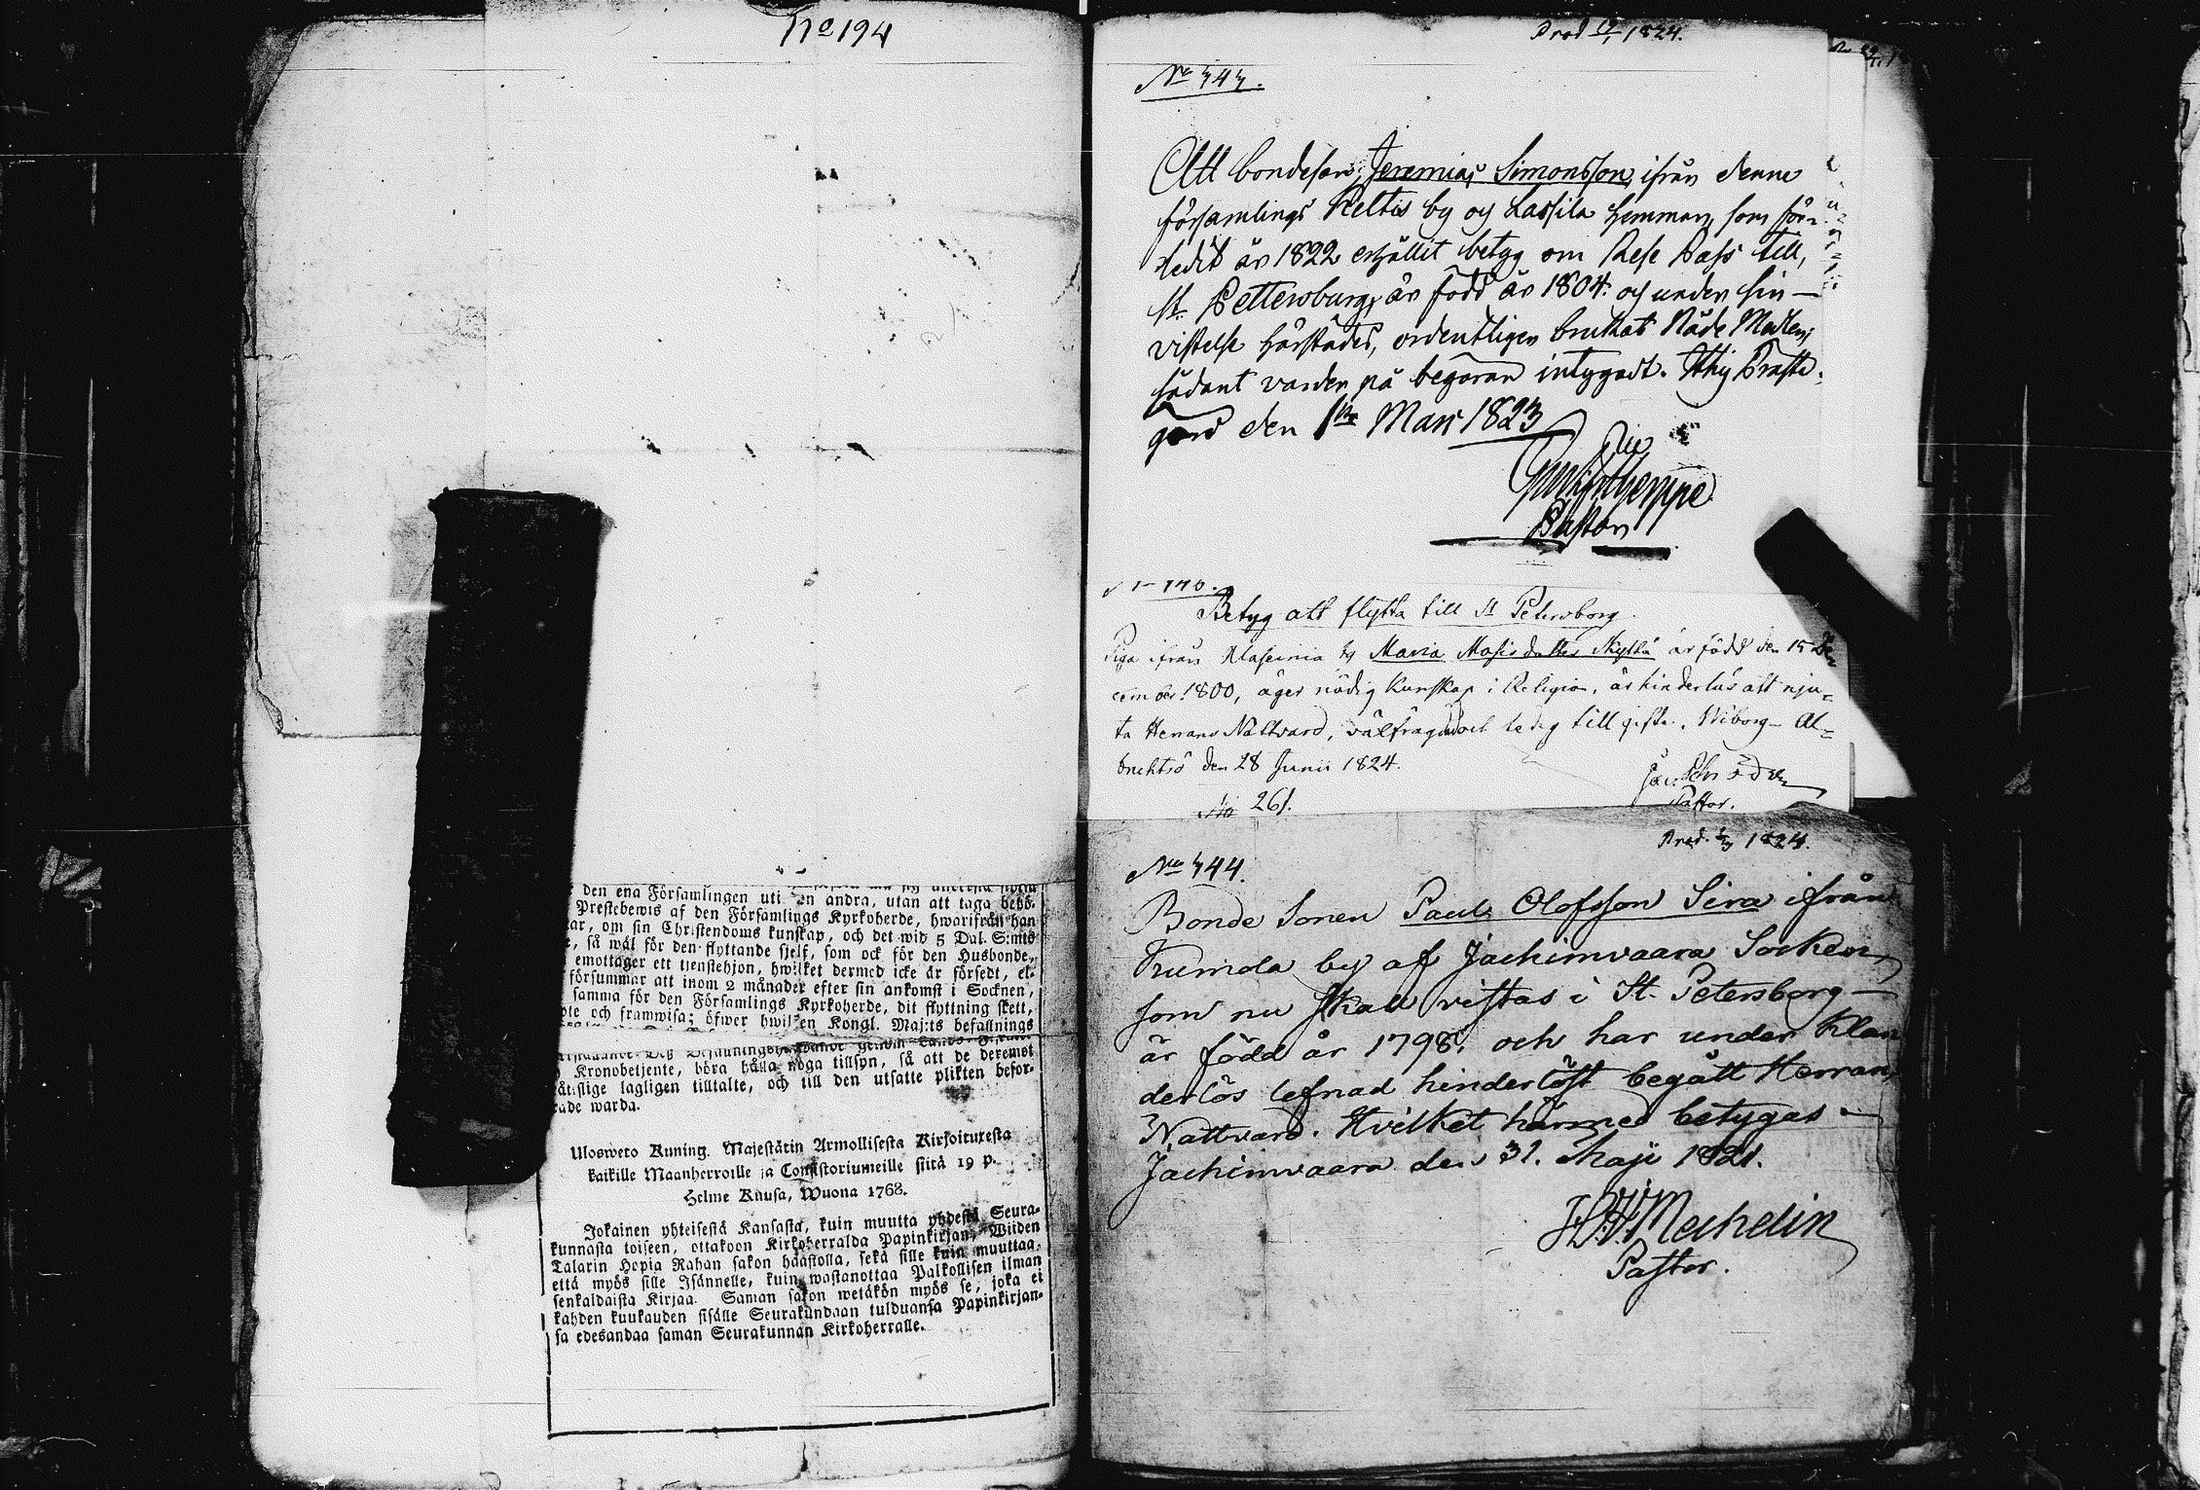 No 194
den ena Församlingen uti en andra, utan att taga behö-
Prestebewis af den Församlings Kyrkoherde, hwarifrån han
ar, om sin Christendoms kunskap, och det wid 5 Dal. S:mts
så wäl för den flyttande sjelf, som ock för den Husbonde,
emottager ett tjenstehjon, hwilket dermed icke är försedt, el-
försummar att inom 2 månader efter sin ankomst i Socknen,
samma för den Församlings Kyrkoherde, dit flyttning skett,
ote och framwisa; öfwer hwilken Kongl. Maj:ts befallnings
Kronobetjente, böra hålla noga tillsyn, så att de deremot
lagligen tilltalte, och till den utsatte plikten befor-
rade warda.
Ulosweto Kuning. Majestätin Armollisesta Kirjoituxesta
kaikille Maanherroille ja Consistoriumeille siitä 19 p.
Helme Kuusa, Wuona 1768.
Jokainen yhteisestä Kansasta, kuin muutta yhdestä Seura-
kunnasta toiseen, ottakoon Kirkoherralda Papinkirjan, Wiiden
Talarin Hopia Rahan sakon haastolla, sekä sille kuin muuttaa,
että myös sille Isännelle, kuin wastanottaa Palkollisen ilman
senkaldaista Kirjaa. Saman sakon wetäkön myös se, joka ei
kahden kuukauden sisälle Seurakundaan tulduansa Papinkirjan-
sa edesandaa saman Seurakunnan Kirkoherralle.
Prod 1824.
No 443.
Att bondeson, Jeremias Simonsson, ifrån denne
församlings Keltis by og Lassila hemman, som för-
ledit år 1822 erhållit betyg om Rese Pass till,
St. Pettersburg, är född år 1804. og under sin
vistelse härstädes, ordentligen bruttat Nåde Medlen;
sådant varder på begäran intygadt. Ithis Präste-
gård den 1ste Mars 1823
Pastor
Betyg att flytta till St Petersborg.
Piga ifrån by Maria Matsdotter Skyttä är född den 15 De-
cember 1800, äger nödig Kunskap i Religion, är hinderlös att nju-
ta Herrans Nattvard, välfrägdad och ledig till gifte. Wiborg
den 28 Junii 1824.
Pastor.
No 261.
Prod. 1824.
No 444.
Bonde Sonen Paul Olofsson Sira ifrån
Kumola by af Jachimvaara Socken
som nu skall vistas i St. Petersborg
är född år 1798. och har under klan-
derlös lefnad hinderlöst begått Herrans
Nattvard. Hvilket härmed betygas
Jachimvaara den 31. Maji 1821.
Mechelin
Pastor.